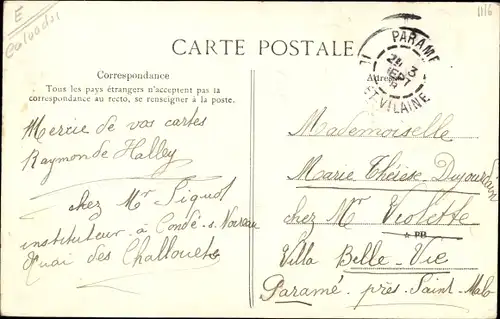 E
Calvados
11/6
CARTE POSTALE
Correspondance
Tous les pays étrangers n'acceptent pas la
correspondance au recto, se renseigner à la poste.
Mercie de vos cartes
Raymonde Halley
chez Mr Piquot
instituteur à Condé-s-Noireau
Quai des Challouets
PARAME
3
SEPT
VILAINE
Mademoiselle
Marie Thérèse Dujourdain
chez Mr Violette
* PB
Villa Belle-Vie
Paramé près Saint-Malo